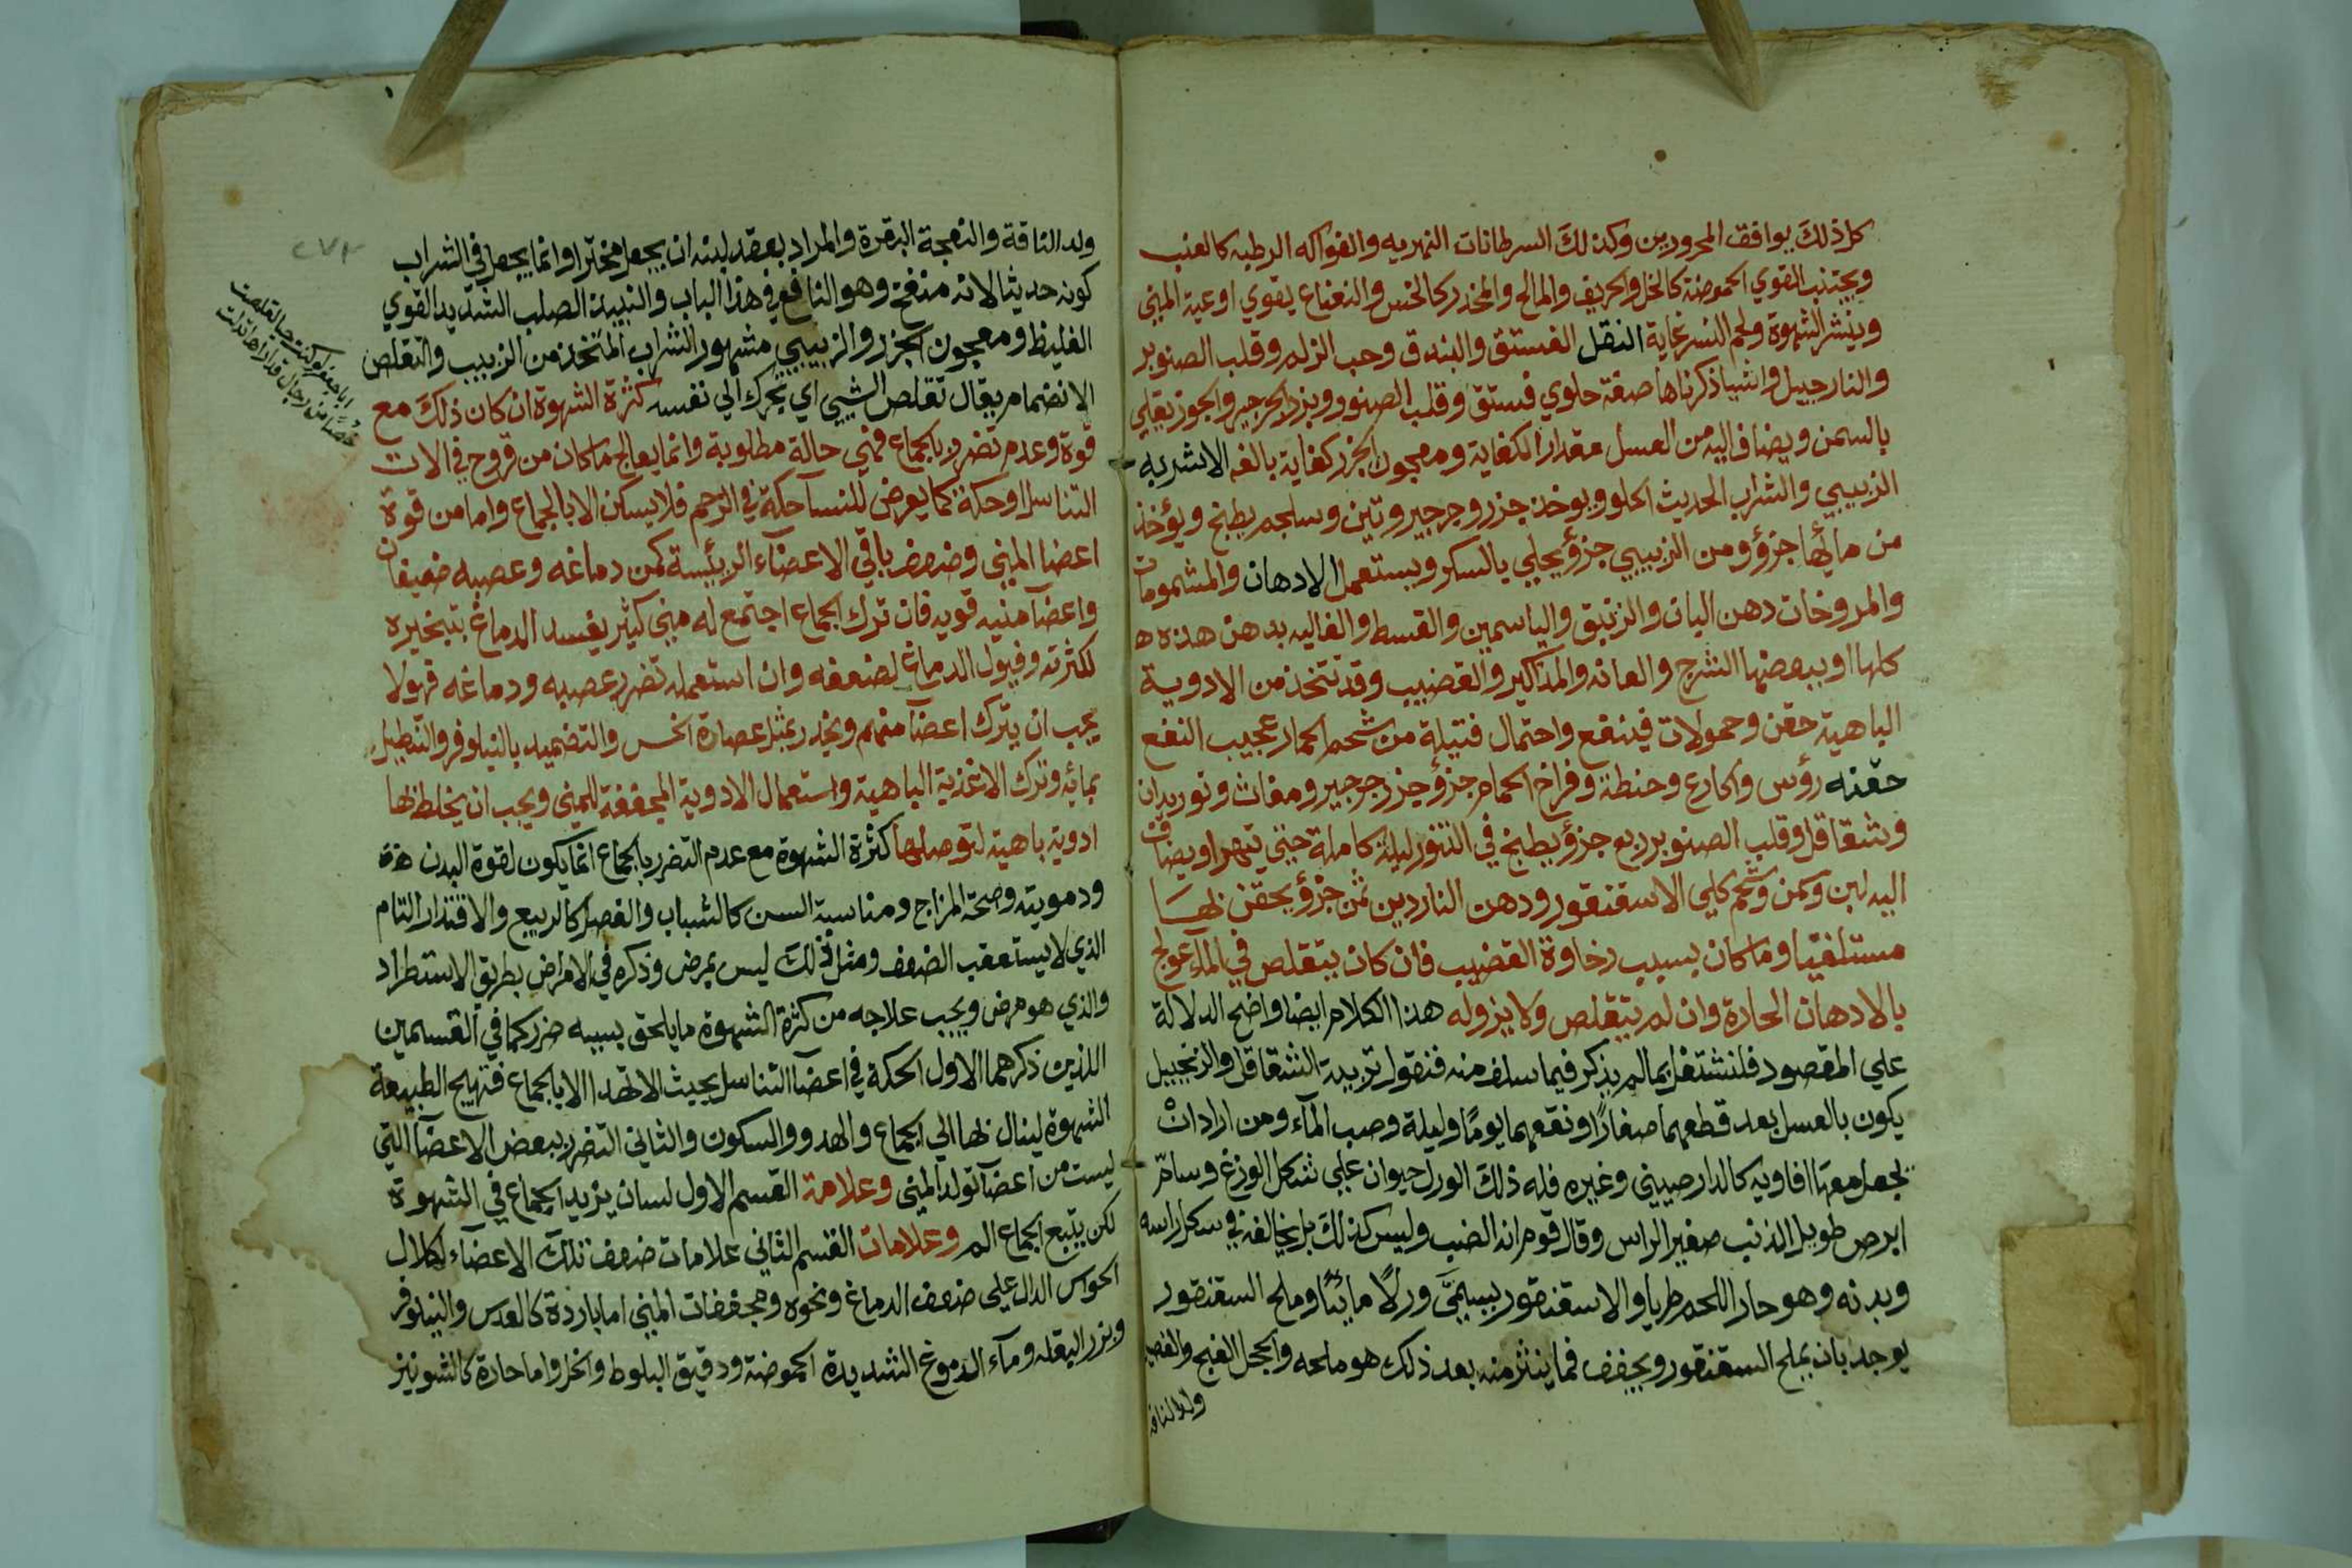 كل ذلك يوافق المحرورين وكذلك السرطانات النهريه والفواكه الرطبه كالعنب
ويجتنب القوي الحموضة كالخل والحريف والمالح والمخدر كالخس والنعناع يقوي اوعية المني
وينشر الشهوة ولحم النسر غاية النقل الفستق والبندق وحب الزلم وقلب الصنوبر
والنارجيل واشيا ذكرناها صفة حلوي فستق وقلب الصنوبر وبزر الجرجير والجوز يقلي
بالسمن ويضاف اليه من العسل مقدار الكفاية ومعجون الجزر كفاية بالغه الاشربه
الزبيبي والشراب الحديث الحلو ويوخذ جزر وجرجير وتين وسلجم يطبخ ويؤخذ
من مائها جزؤ ومن الزبيبي جزؤ يحلي بالسكر ويستعمل الادهان والمشمومات
والمروخات دهن البان والزنبق والياسمين والقسط والغاليه يدهن هذه ه
كلها او ببعضها الشرج والعانه والمذاكير والقضيب وقد تتخذ من الادوية
الباهية حقن وحمولات فينفع واحتمال فتيلة من شحم الحمار عجيب النفع
حقنه رؤس واكارع وحنطة وفراخ الحمام جزؤ جزر جرجير ومغاث وتوريدان
وشقاقل وقلب الصنوبر ربع جزؤ يطبخ في التنور ليلة كاملة حتي تتهرا ويضاف
اليه لبن وسمن وشحم كلي الاسقنقور ودهن الناردين ثمن جزؤ يحقن بها
مستلقيا وما كان بسبب رخاوة القضيب فان كان يتقلص في المآء عولج
بالادهان الحارة وان لم يتقلص فلا يزوله هذا الكلام ايضا واضح الدلالة
علي المقصود فلنشتغل بما لم يذكر فيما سلف منه فنقول تربية الشقاقل والزنجبيل
يكون بالعسل بعد قطعهما صغارا ونقعهما يوما وليلة وصب المآء ومن اراد ان
يجعل معها افاويه كالدارصيني وغيره فله ذلك الورل حيوان علي شكل الوزغ وسام
ابرص طويل الذنب صغير الراس وقال قوم انه الضب وليس كذلك بل يخالفه في شكل راسه
وبدنه وهو حار اللحم طريا والاسقنقور يسمى ورلا مائيا وملح السقنقور
يوجد بان يملح السقنقور ويجفف فما ينثر منه بعد ذلك هو ملحه والحجل القبج والفصيل
ولد الناقة
ولد الناقة والنعجة البقرة والمراد بعقد لبنه ان يجعل مخثرا وانما يجعل في الشراب
كونه حديثا لانه منفخ وهو النافع في هذا الباب والنبيذ الصلب الشديد القوي
الغليظ ومعجون الجزر والزبيبي مشهور الشراب المتخذ من الزبيب والتقلص
الانضمام يقال تقلص الشيي اي يحرك الي نفسه كثرة الشهوة ان كان ذلك مع
قوة وعدم تضرر بالجماع فهي حالة مطلوبة وانما يعالج ما كان من قروح في الات
التناسل او حكة كما يعرض للنسآ حكة في الرحم فلا يسكن الا بالجماع واما من قوة
اعضا المني وضعف باقي الاعضاء الرئيسة كمن دماغه وعصبه ضعيفان
واعضآ منيه قويه فان ترك الجماع اجتمع له مني كثير يفسد الدماغ بتبخيره
لكثرته وقبول الدماغ لضعفه وان استعمله تضرر عصبه ودماغه فهولا
يجب ان يترك اعضآ منيهم ويخدر بمثل عصارة الخس والتضميد بالنيلوفر والتنطيل
بمائه وترك الاغذية الباهية واستعمال الادوية المجففة للمني ويجب ان يخلط بها
ادوية باهية لتوصلها كثرة الشهوة مع عدم التضرر بالجماع انما يكون لقوة البدن
ودمويته وصحة المزاج ومناسبة السن كالشباب والفصل كالربيع والاقتدار التام
الذي لا يستعقب الضعف ومثل ذلك ليس بمرض وذكره في الامراض بطريق الاستطراد
والذي هو مرض ويجب علاجه من كثرة الشهوة ما يلحق بسببه ضرر كما في القسمين
اللذين ذكرهما الاول الحكة في اعضآ التناسل بحيث لا تهدا الا بالجماع فتهيج الطبيعة
الشهوة لينال بها الي الجماع والهدو والسكون والثاني التضرر ببعض الاعضآ التي
ليست من اعضآ تولد المني وعلامة القسم الاول لسان يزيد الجماع في الشهوة
لكن يتبع الجماع الم وعلامات القسم الثاني علامات ضعف تلك الاعضاء لكلال
الحواس الدال علي ضعف الدماغ ونحوه ومجففات المني اما باردة كالعدس والنيلوفر
وبزر البقله ومآء الدموغ الشديدة الحموضة ودقيق البلوط والخل واما حارة كالشونيز